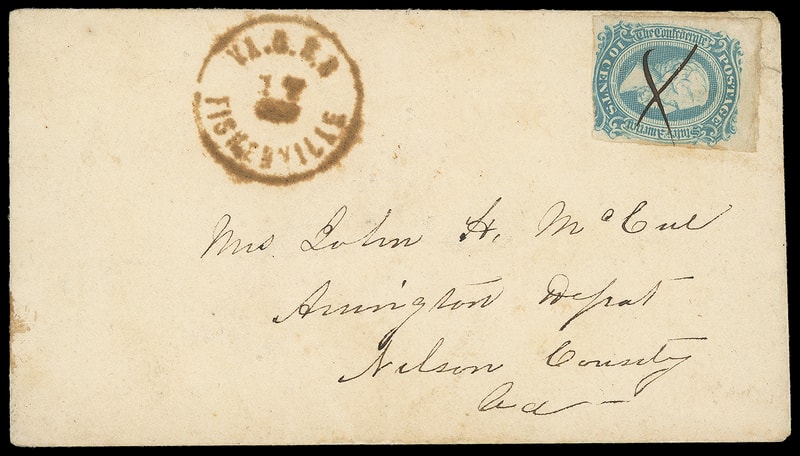 VA.C.R.R
17
FISHERVILLE
The Confederate
States of America
POSTAGE
10 CENTS
X
Mrs John H. McCue
Arrington Depot
Nelson County
Va